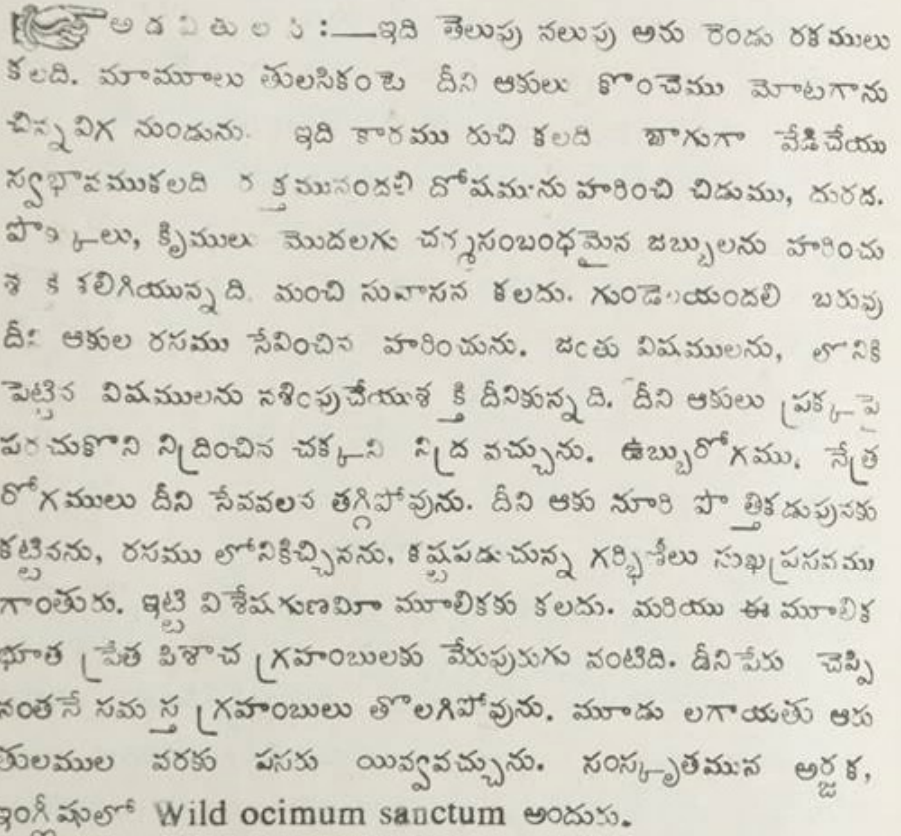 అడవితులసి :—ఇది తెలుపు నలుపు అను రెండు రకములు
కలది. మామూలు తులసికంటె దీని ఆకులు కొంచెము మోటగాను
చిన్నవిగ నుండును. ఇది కారము రుచి కలది బాగుగా వేడిచేయు
స్వభావముకలది రక్తమునందలి దోషమును హరించి చిడుము, దురద.
పొక్కులు, క్రిములు మొదలగు చర్మసంబంధమైన జబ్బులను హరించు
శక్తి కలిగియున్నది. మంచి సువాసన కలదు. గుండెయందలి బరువు
దీని ఆకుల రసము సేవించిన హరించును. జంతు విషములను, లోనికి
పెట్టిన విషములను నశింపుచేయుశక్తి దీనికున్నది. దీని ఆకులు ప్రక్కపై
పరచుకొని నిద్రించిన చక్కని నిద్ర వచ్చును. ఉబ్బురోగము, నేత్ర
రోగములు దీని సేవవలన తగ్గిపోవును. దీని ఆకు నూరి పొత్తికడుపునకు
కట్టినను, రసము లోనికిచ్చినను, కష్టపడుచున్న గర్భిణీలు సుఖప్రసవము
గాంతురు. ఇట్టి విశేషగుణమీ మూలికకు కలదు. మరియు ఈ మూలిక
భూత ప్రేత పిశాచ గ్రహంబులకు వేరుపురుగు వంటిది. దీనిపేరు చెప్పి
నంతనే సమస్త గ్రహంబులు తొలగిపోవును. మూడు లగాయతు ఆరు
తులముల వరకు పసరు యివ్వవచ్చును. సంస్కృతమున అర్జక,
ఇంగ్లీషులో Wild ocimum sanctum అందురు.